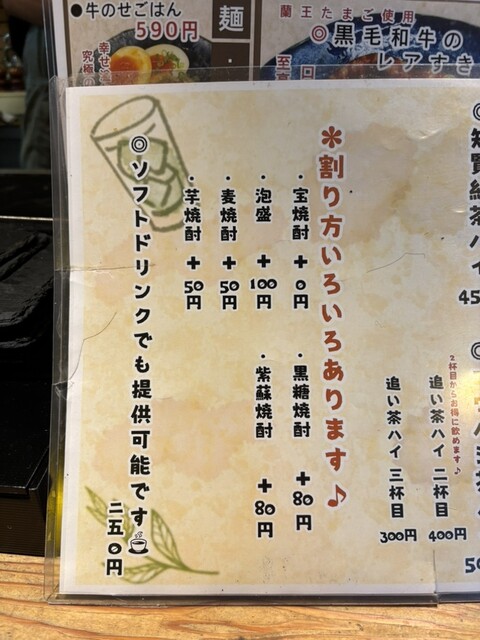 ●牛のせごはん
590円
幸せ
究極の
麺
蘭王たまご使用
◎黒毛和牛の
レアすき
45
2杯目からお得に飲めます♪
追い茶ハイ 二杯目 400円
追い茶ハイ 三杯目 300円
*割り方いろいろあります♪
・宝焼酎 +0円
・黒糖焼酎 +80円
・泡盛 +100円
・紫蘇焼酎 +80円
・麦焼酎 +50円
・芋焼酎 +50円
◎ソフトドリンクでも提供可能です
二五〇円